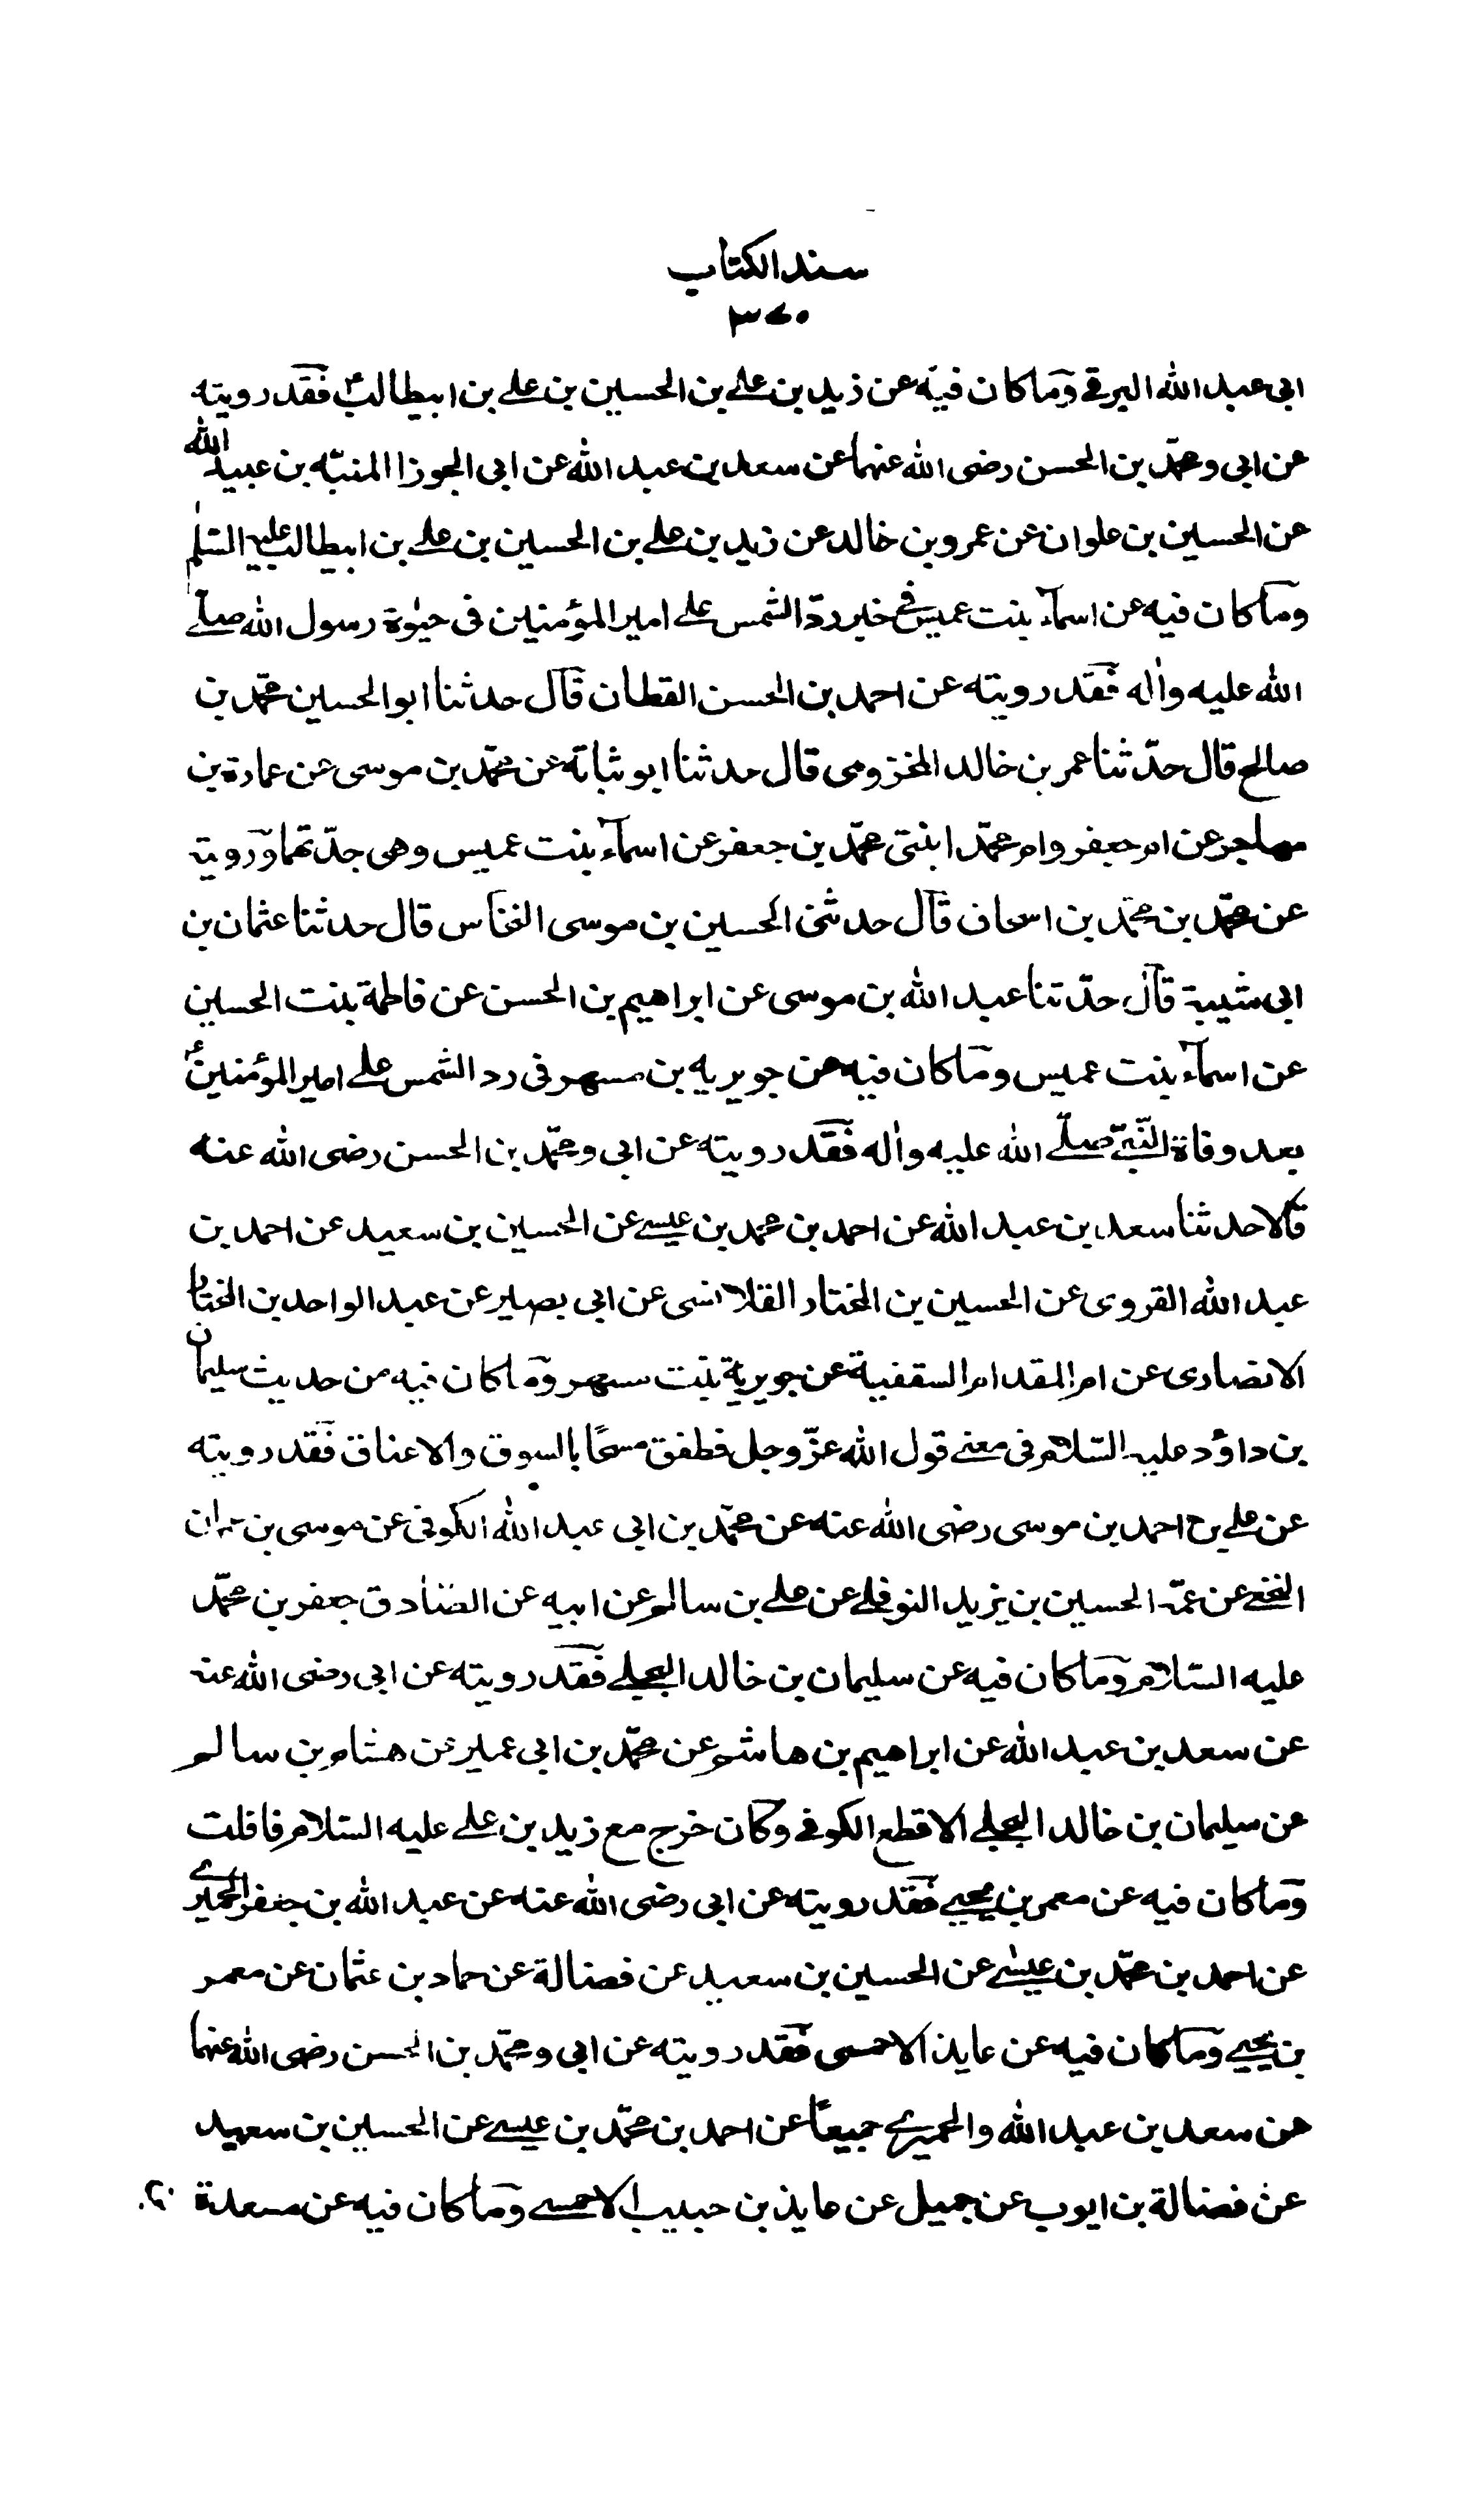 سند الكتاب
٣٧٠
ابى عبد الله البرقے ومَا كان فيه عن زيد بن علے بن الحسين بن علے بن ابيطالبؑ فقد رويته
عن ابى ومحمّد بن الحسن رضى الله عنهما عن سعد بن عبد الله عن ابى الجوزا المنبّه بن عبيد الله
عن الحسين بن علوان عن عمرو بن خالد عن زيد بن علے بن الحسين بن علے بن ابيطالب عليه السّلم
ومَا كان فيه عن اسمآء بنت عميس فے خبر ردّ الشمس علے امير المؤمنين فى حيٰوة رسول الله صلّے
الله عليه واٰله فقد رويته عن احمد بن الحسن القطان قآل حدثنا ابو الحسين محمّد بن
صالح قال حدّثنا عمر بن خالد المخزومى قال حدثنا ابو ثباتة عن محمّد بن موسى عن عمارة بن
مهاجر عن ام جعفر وام محمّد ابنتى محمّد بن جعفر عن اسمآء بنت عميس وهى جدّتهما ورويته
عن محمّد بن محمّد بن اسحاق قآل حدثنى الحسين بن موسى النخّاس قال حدثنا عثمان بن
ابى شيبة قآل حدّثنا عبد الله بن موسى عن ابراهيم بن الحسن عن فاطمة بنت الحسين
عن اسمآء بنت عميس ومَا كان فيه عن جويريه بن مسهر فى رد الشمس علے امير المؤمنينؑ
بعد وفاة النّبىّ صلّے الله عليه واٰله فقد رويته عن ابى ومحمّد بن الحسن رضى الله عنه
قآلا حدثنا سعد بن عبد الله عن احمد بن محمد بن عيسے عن الحسين بن سعيد عن احمد بن
عبد الله القروى عن الحسين بن المختار القلانسى عن ابى بصير عن عبد الواحد بن المختار
الانصارى عن ام المقدام السقفية عن جويرية بنت مسهر ومَا كان فيه من حديث سليمان
بن داؤد عليه السّلام فى معنے قول الله عزّ وجل فطفق مسحًا بالسوق والاعناق فقد رويته
عن علے بن احمد بن موسى رضى الله عنه عن محمّد بن ابى عبد الله الكوفى عن موسى بن عمران
النخعے عن عمّه الحسين بن يزيد النوفلے عن علے بن سالم عن ابيه عن الصّادق جعفر بن محمّد
عليه السّلام ومَا كان فيه عن سليمان بن خالد البجلے فقد رويته عن ابى رضى الله عنه
عن سعد بن عبد الله عن ابراهيم بن هاشم عن محمّد بن ابى عمير عن هشام بن سالم
عن سليمان بن خالد البجلے الاقطع الكوفے وكان خرج مع زيد بن علے عليه السّلام فافلت
ومَا كان فيه عن معمر بن يحيے فقد رويته عن ابى رضى الله عنه عن عبد الله بن جعفر الحميرے
عن احمد بن محمّد بن عيسٰے عن الحسين بن سعيد عن فضالة عن حماد بن عثمان عن معمر
بن يحيے ومَا كان فيه عن عايذ الاحمسى فقد رويته عن ابى ومحمّد بن الحسن رضى الله عنهما
عن سعد بن عبد الله والحميرے جميعًا عن احمد بن محمّد بن عيسے عن الحسين بن سعيد
عن فضالة بن ايوب عن جميل عن عايذ بن حبيب الاحمسے ومَا كان فيه عن مسعدة بن